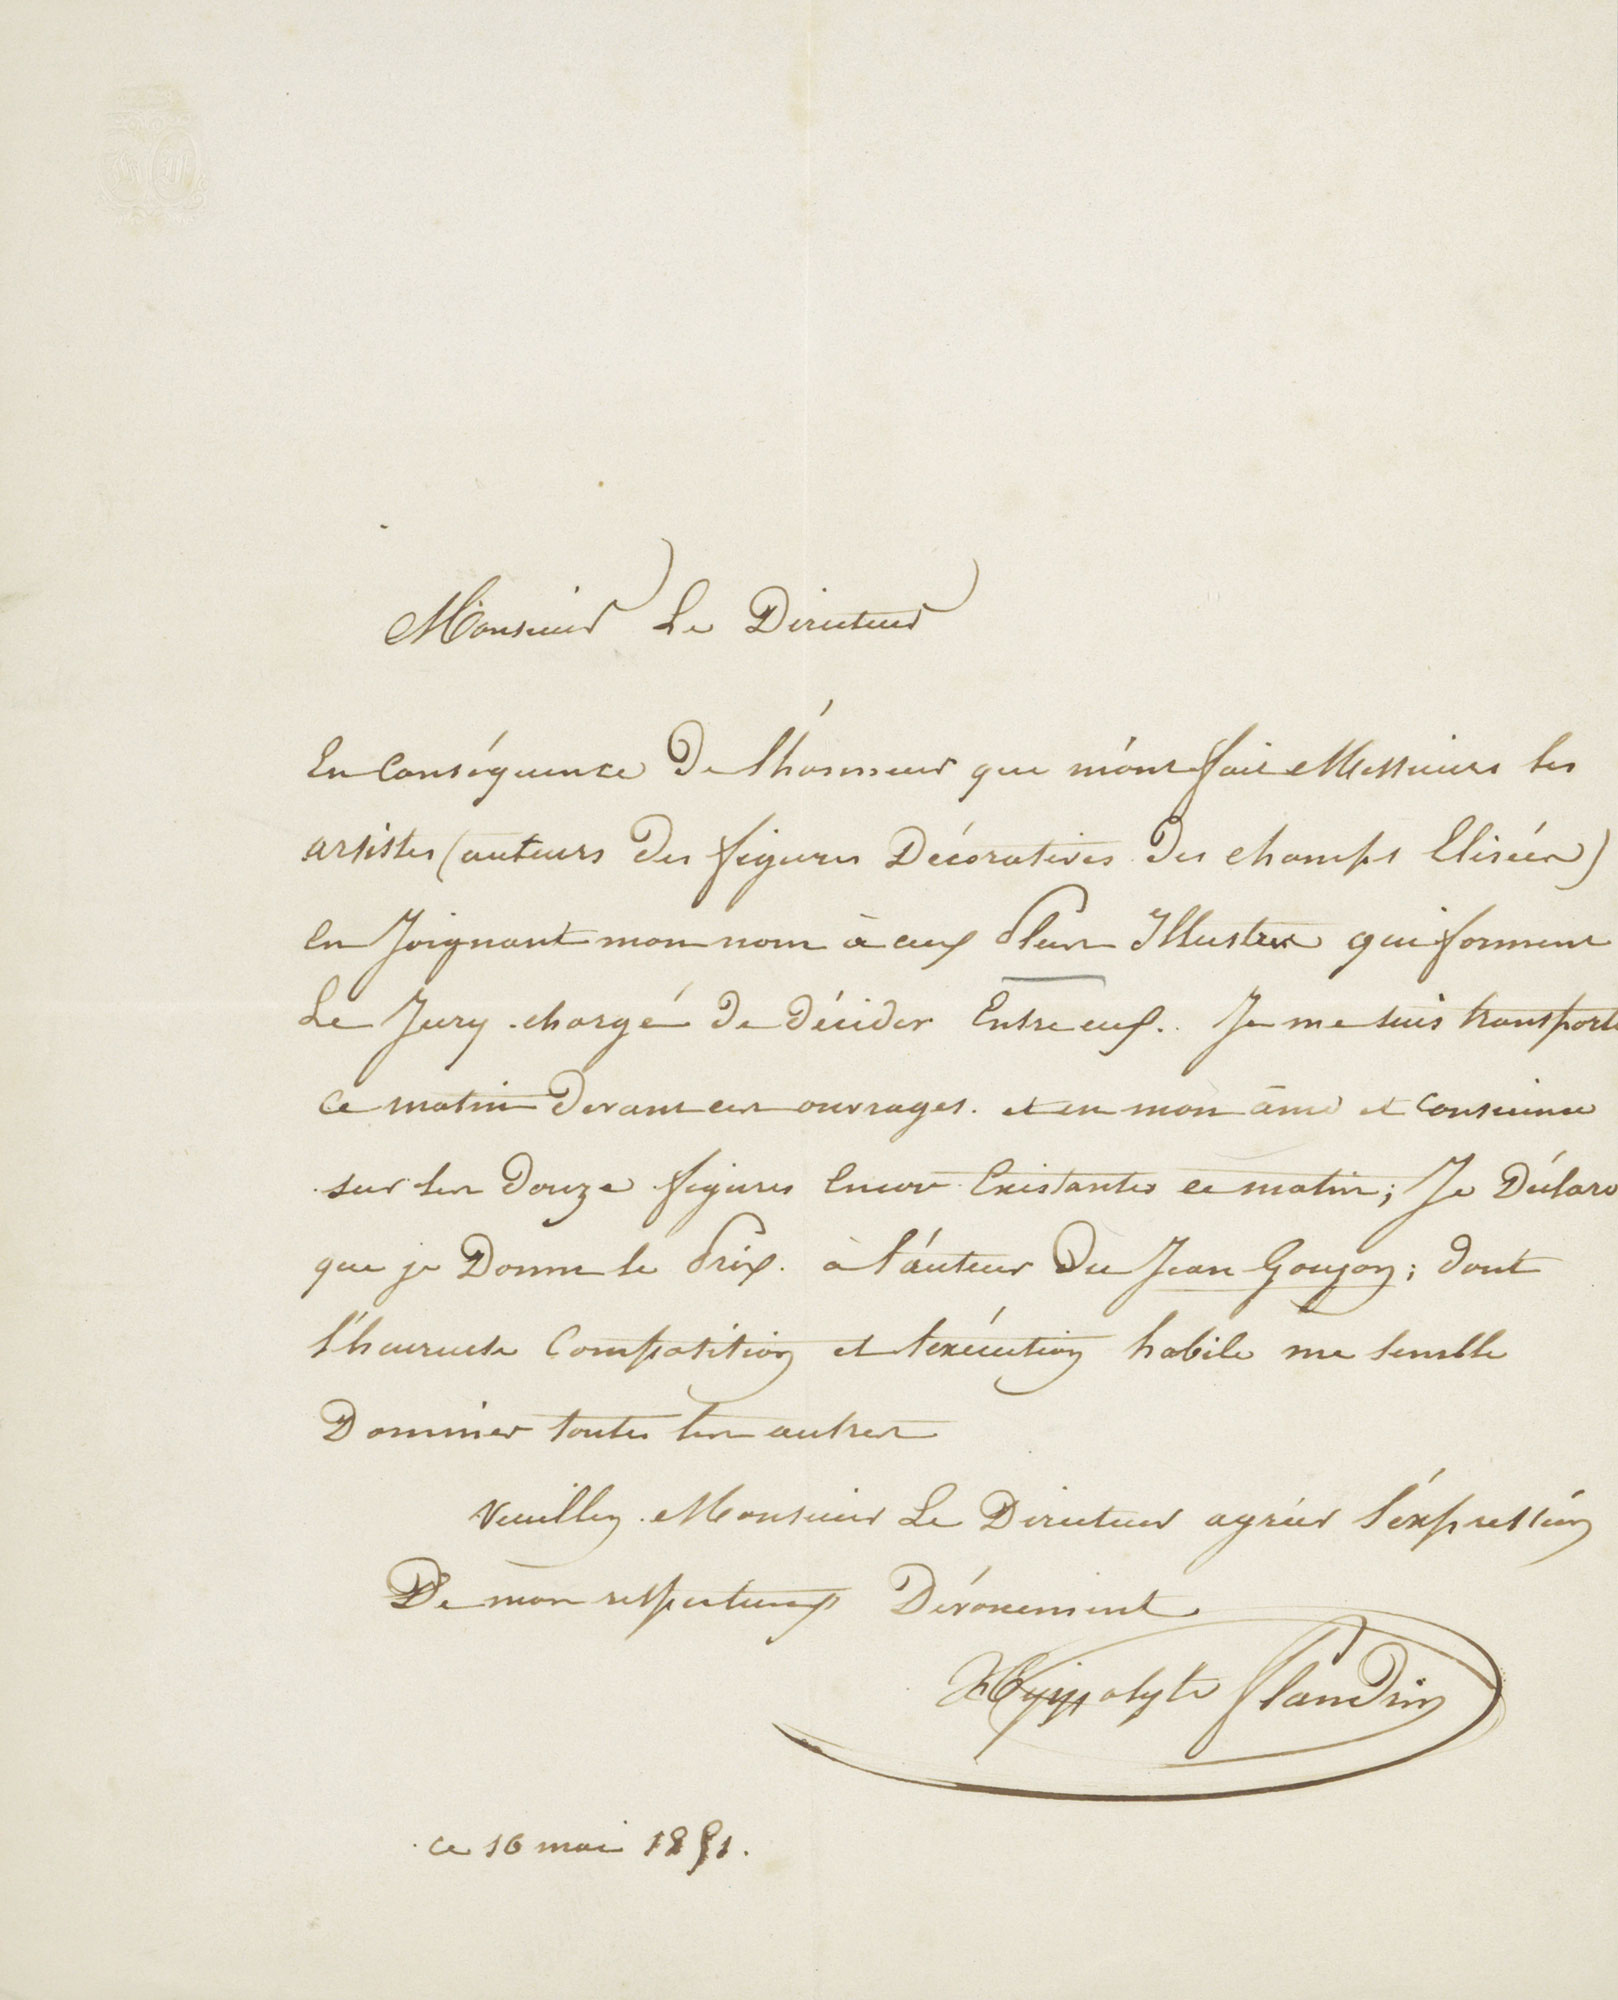 Monsieur Le Directeur
En Conséquence De l'honneur que m'ont fait Messieurs les
artistes (auteurs des figures Décoratives des champs Elisées)
en Joignant mon nom à ceux Plus Illustres qui forment
Le Jury chargé de décider Entre eux. Je me suis transporté
ce matin devant ces ouvrages. et en mon âme et conscience
sur les douze figures Encore Existantes ce matin; Je Déclare
que je Donne le Prix. à l'auteur Du Jean Goujon; dont
l'heureuse Composition et l'exécution habile me semble
Dominer toutes les autres
Veuillez Monsieur Le Directeur agréer l'expression
De mon respectueux Dévouement
Hyppolyte flandrin
ce 16 mai 1851.